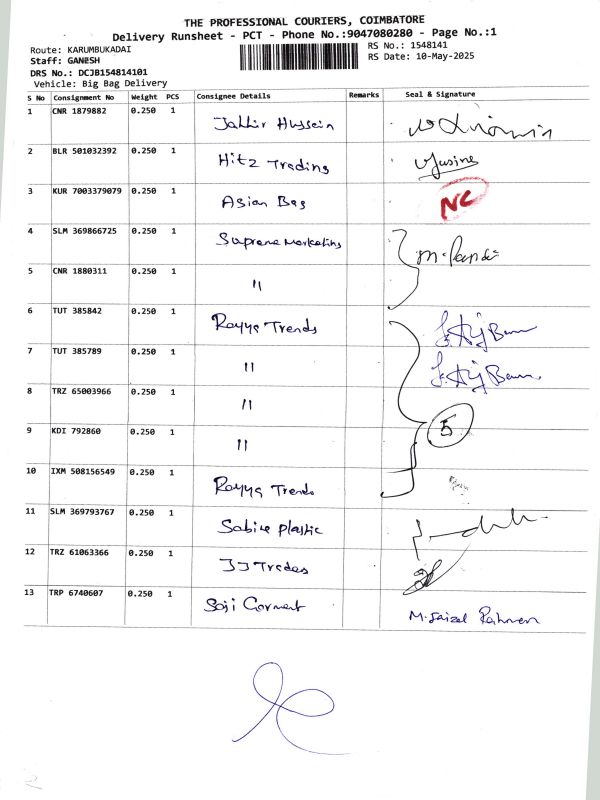 THE PROFESSIONAL COURIERS, COIMBATORE
Delivery Runsheet - PCT - Phone No.:9047080280 - Page No.:1
Route: KARUMBUKADAI
RS No.: 1548141
Staff: GANESH
RS Date: 10-May-2025
DRS No.: DCJB154814101
Vehicle: Big Bag Delivery
S No Consignment No Weight PCS Consignee Details Remarks Seal & Signature
1 CNR 1879882 0.250 1 Jakkir Hussein
2 BLR 501032392 0.250 1 Hitz Trading Yasine
3 KUR 7003379079 0.250 1 Asian Bag NC
4 SLM 369866725 0.250 1 Supreme Marketing
5 CNR 1880311 0.250 1 "
6 TUT 385842 0.250 1 Rayya Trends
7 TUT 385789 0.250 1 "
8 TRZ 65003966 0.250 1 "
9 KDI 792860 0.250 1 " 5
10 IXM 508156549 0.250 1 Rayya Trends
11 SLM 369793767 0.250 1 Sabire Plastic
12 TRZ 61063366 0.250 1 JJ Trades
13 TRP 6740607 0.250 1 Saji Garment M. Faizel Rahmen